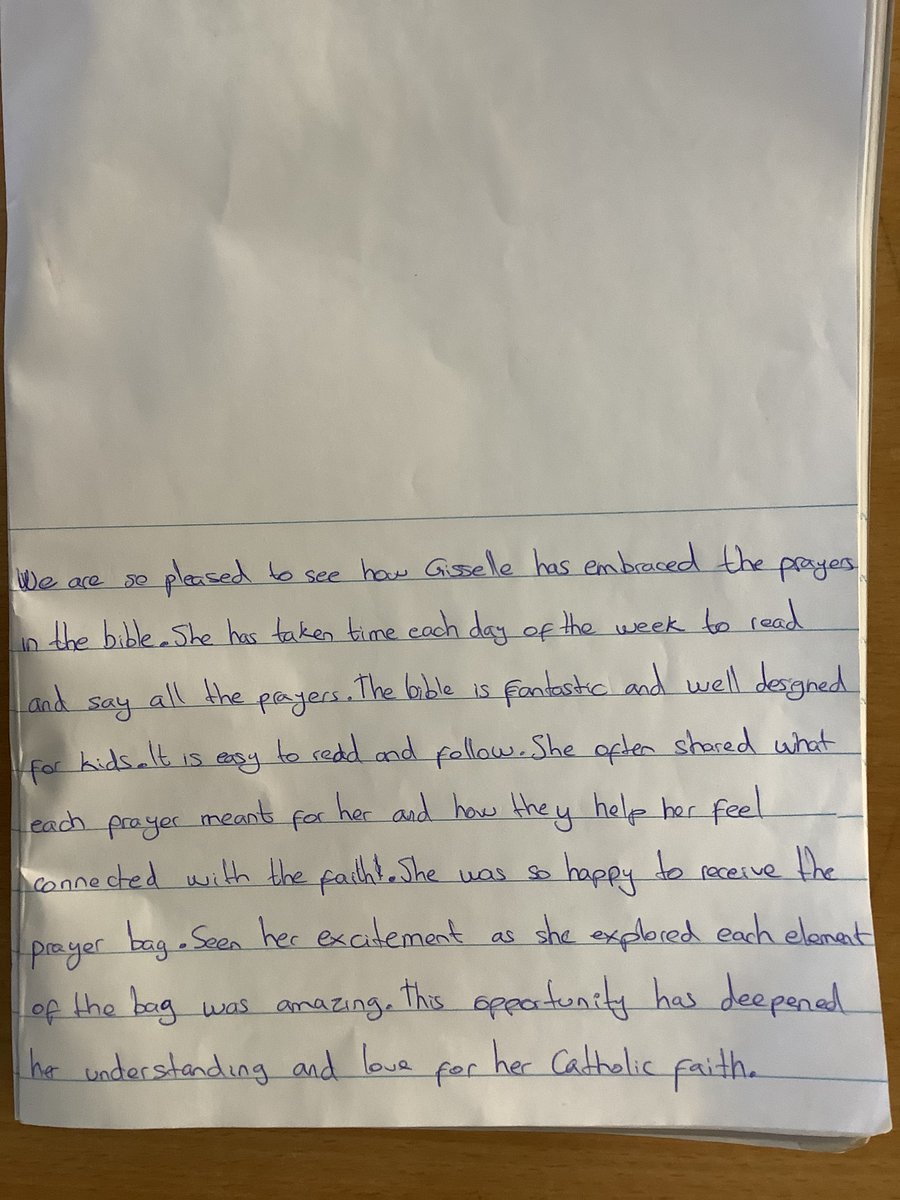 We are so pleased to see how Gisselle has embraced the prayers
in the bible. She has taken time each day of the week to read
and say all the prayers. The bible is fantastic and well designed
for kids. It is easy to read and follow. She often shared what
each prayer meant for her and how they help her feel
connected with the faith. She was so happy to receive the
prayer bag. Seen her excitement as she explored each element
of the bag was amazing. This opportunity has deepened
her understanding and love for her Catholic faith.